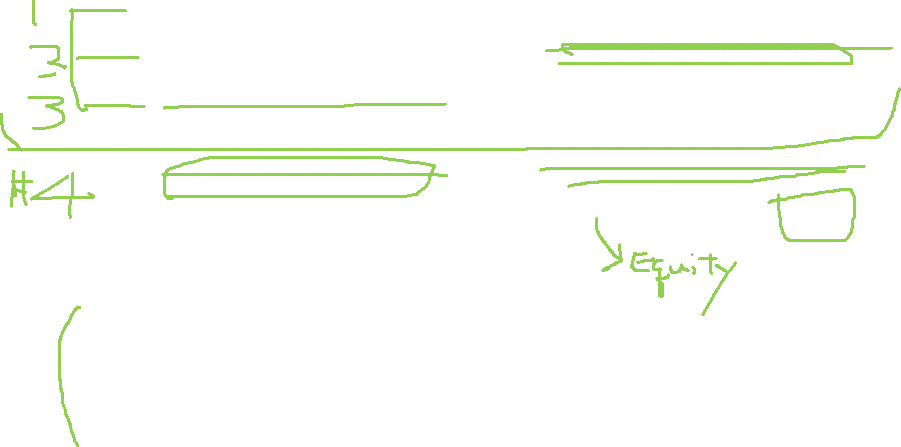 1
2
3
#4
Equity